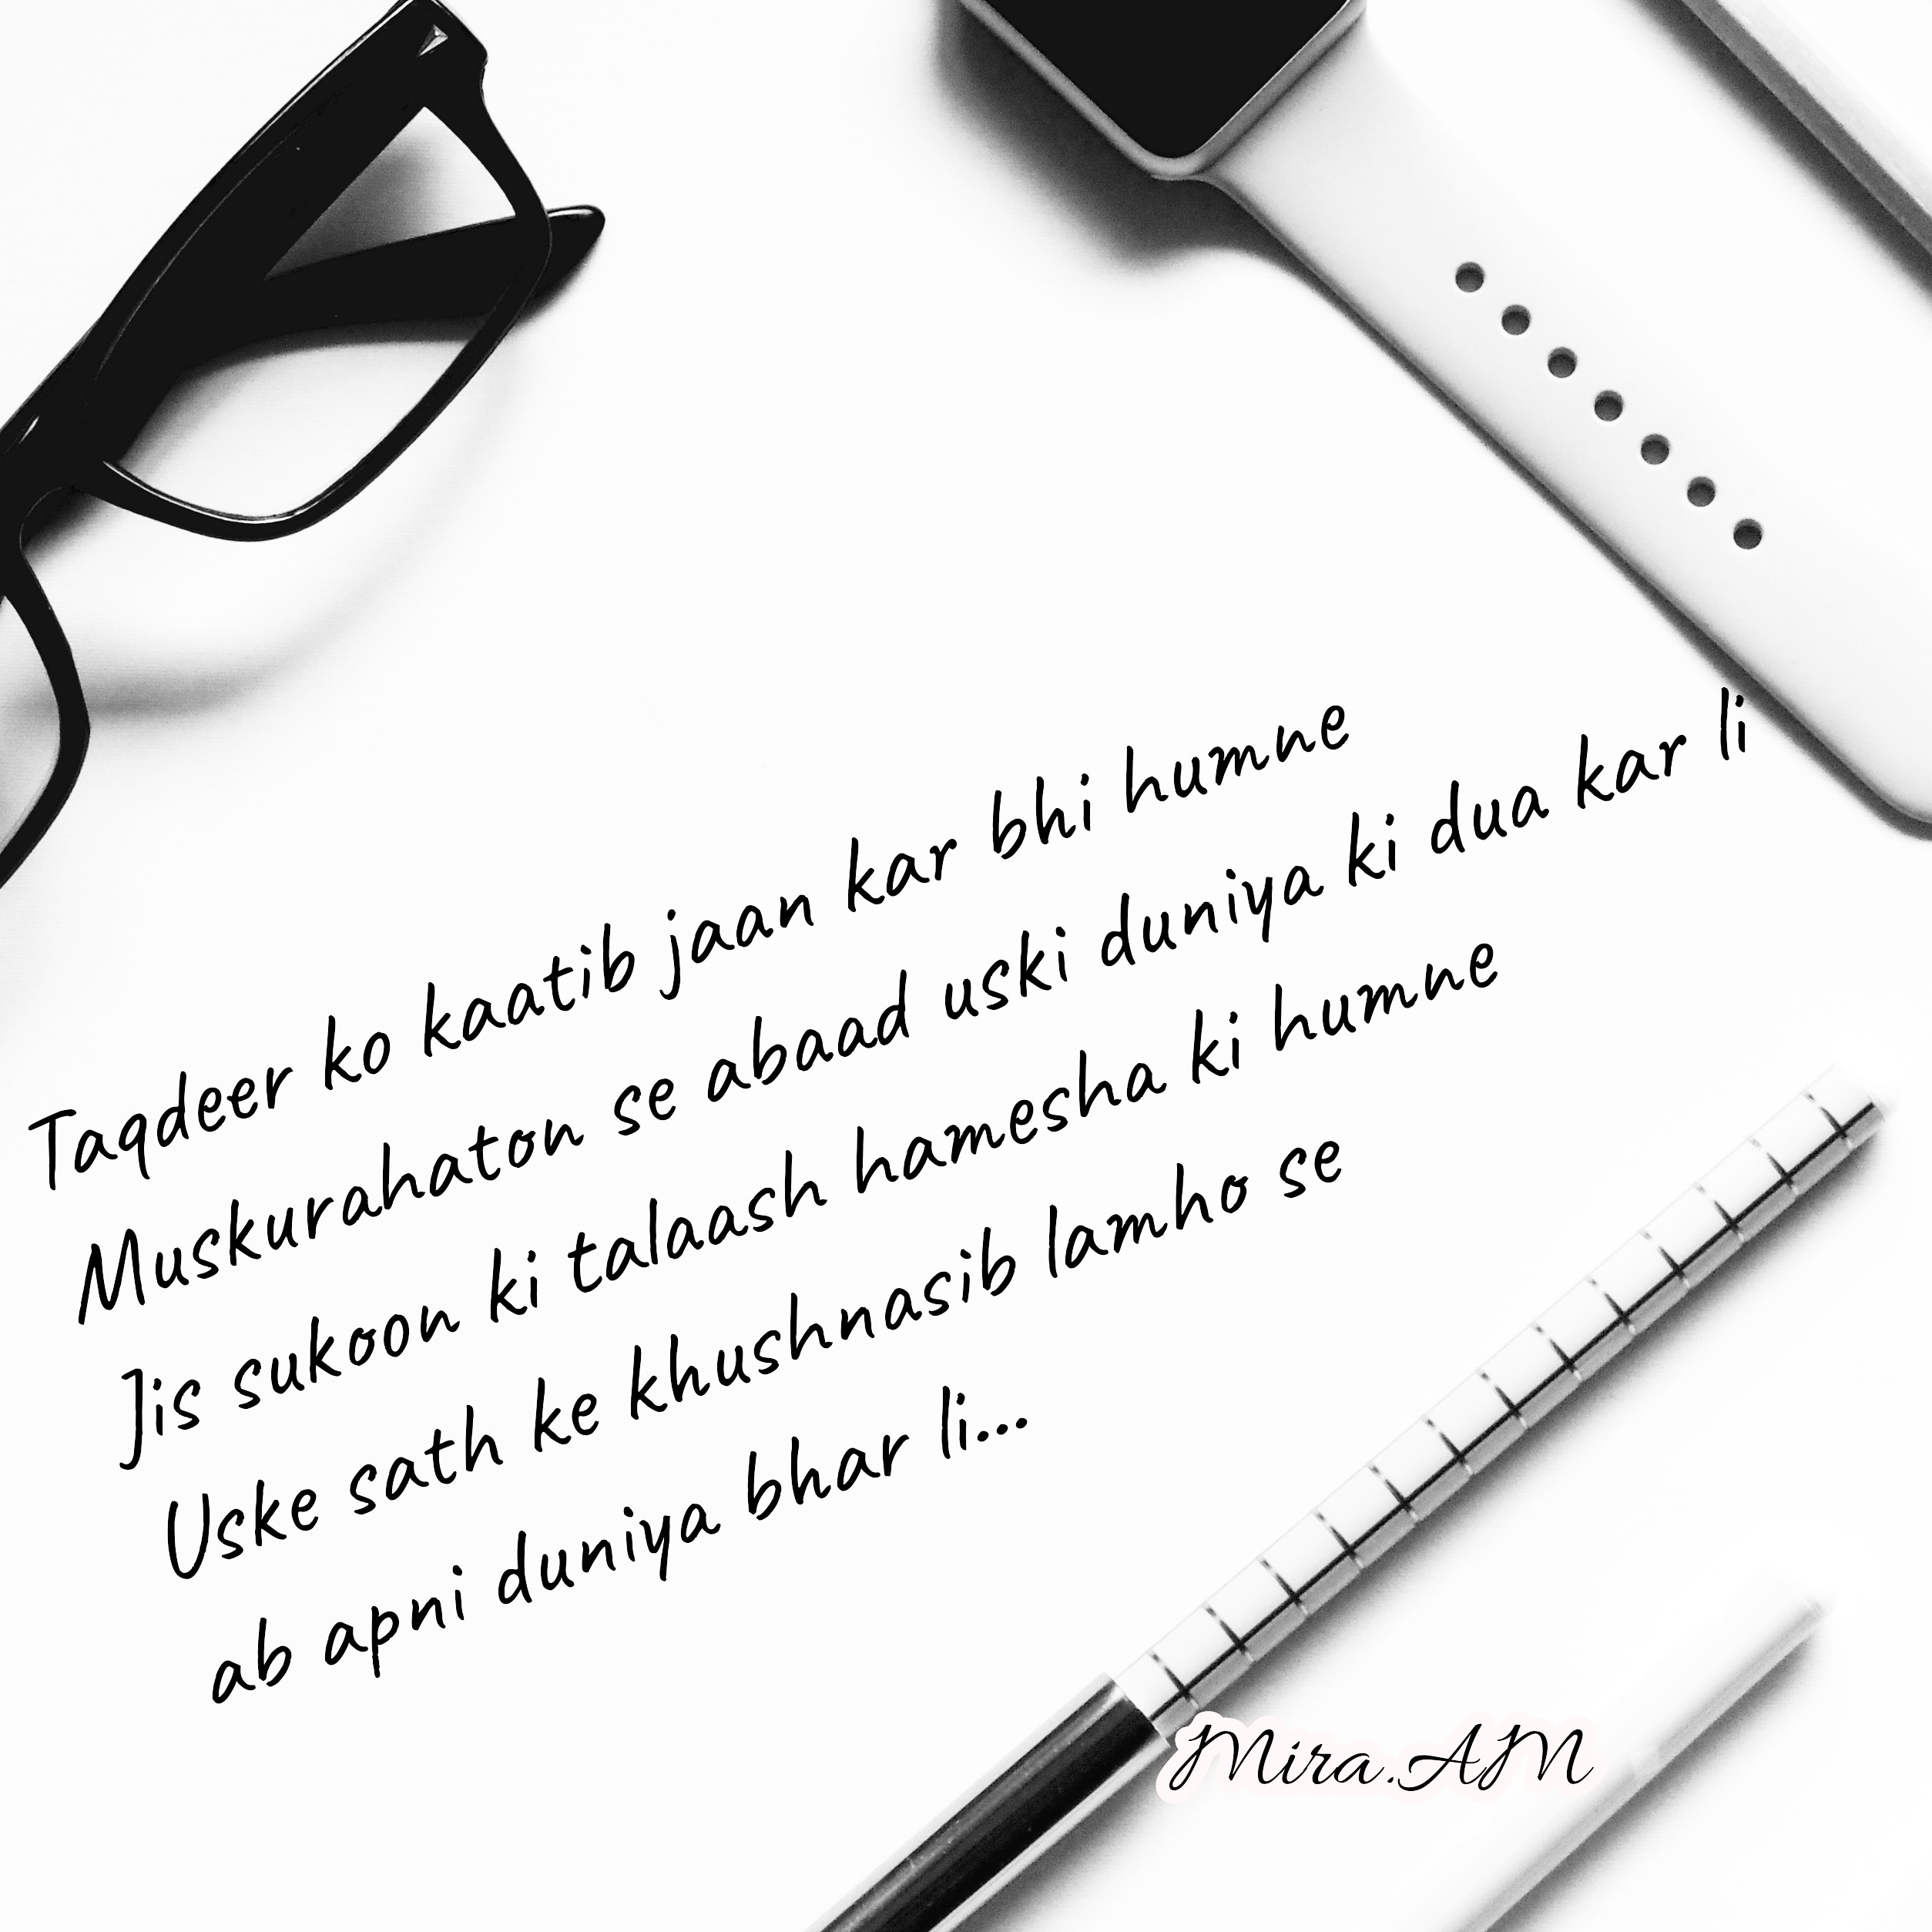 Taqdeer ko kaatib jaan kar bhi humne
Muskurahaton se abaad uski duniya ki dua kar li
Jis sukoon ki talaash hamesha ki humne
Uske sath ke khushnasib lamho se
ab apni duniya bhar li...
Mira.AM